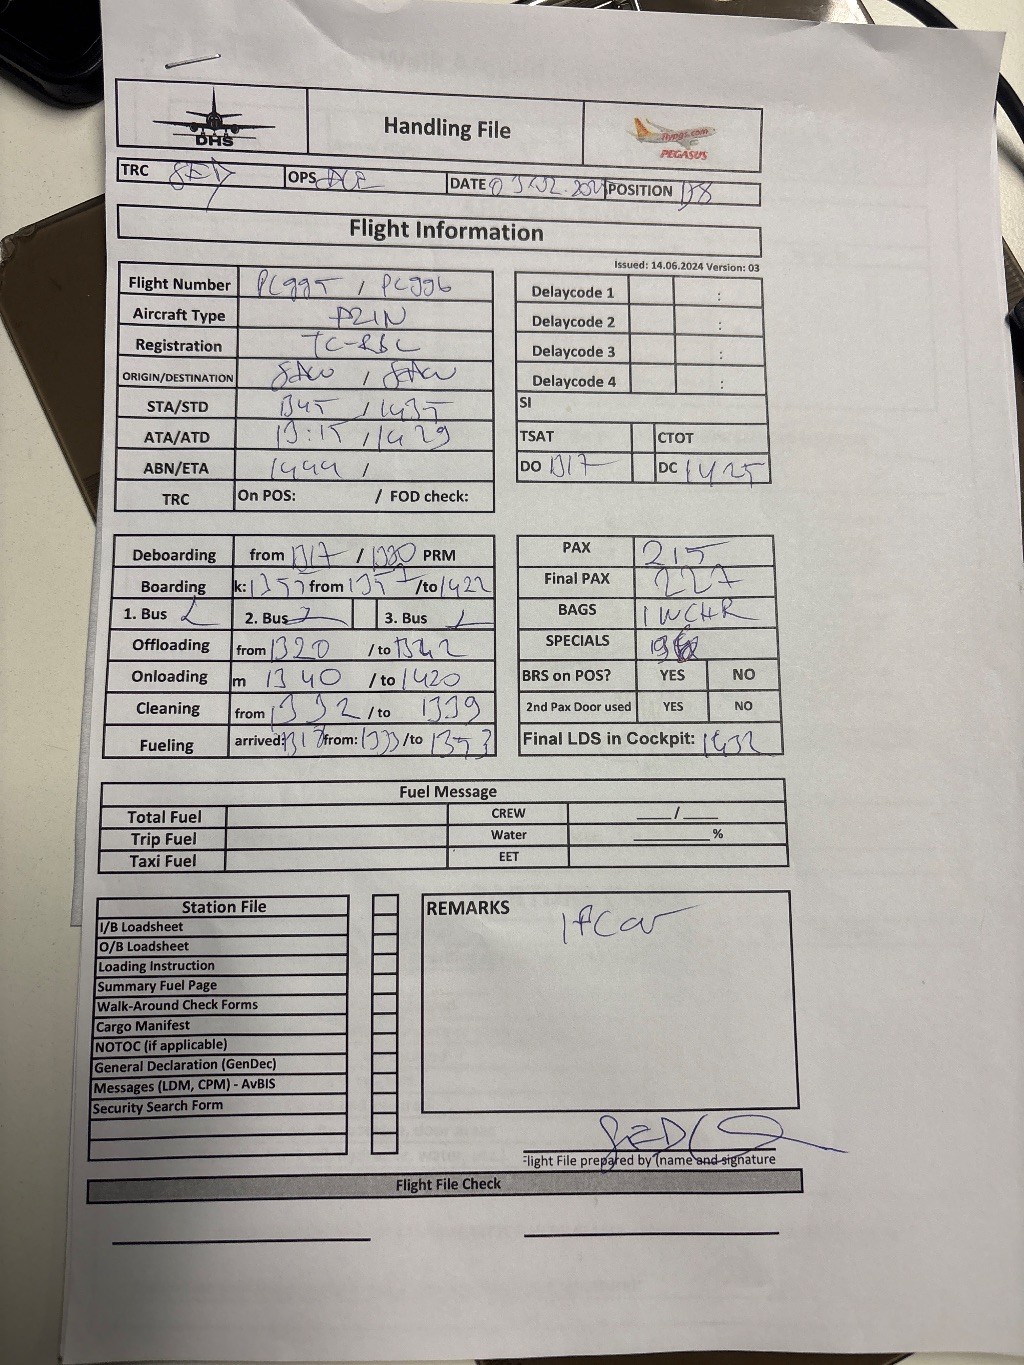 DHS
Handling File
flypgs.com
PEGASUS
TRC SED OPS DATE POSITION
Flight Information
Issued: 14.06.2024 Version: 03
Flight Number PC995 / PC996
Aircraft Type A21N
Registration
ORIGIN/DESTINATION SAW / SAW
STA/STD 1345 / 1435
ATA/ATD 13:15 / 1429
ABN/ETA 1444 /
TRC On POS: / FOD check:
Delaycode 1 :
Delaycode 2 :
Delaycode 3 :
Delaycode 4 :
SI
TSAT CTOT
DO 1317 DC 1425
Deboarding from 1317 / 1330 PRM
Boarding k: 1357 from 1357 /to 1422
1. Bus 2. Bus 3. Bus
Offloading from 1320 / to 1342
Onloading m 1340 / to 1420
Cleaning from 1332 / to 1339
Fueling arrived: 1317 from: 1333 /to 1353
PAX 215
Final PAX 227
BAGS 1 WCHR
SPECIALS
BRS on POS? YES NO
2nd Pax Door used YES NO
Final LDS in Cockpit: 1432
Fuel Message
Total Fuel CREW ____/____
Trip Fuel Water ________%
Taxi Fuel EET
Station File
I/B Loadsheet
O/B Loadsheet
Loading Instruction
Summary Fuel Page
Walk-Around Check Forms
Cargo Manifest
NOTOC (if applicable)
General Declaration (GenDec)
Messages (LDM, CPM) - AvBIS
Security Search Form
REMARKS
SED
Flight File prepared by (name and signature
Flight File Check